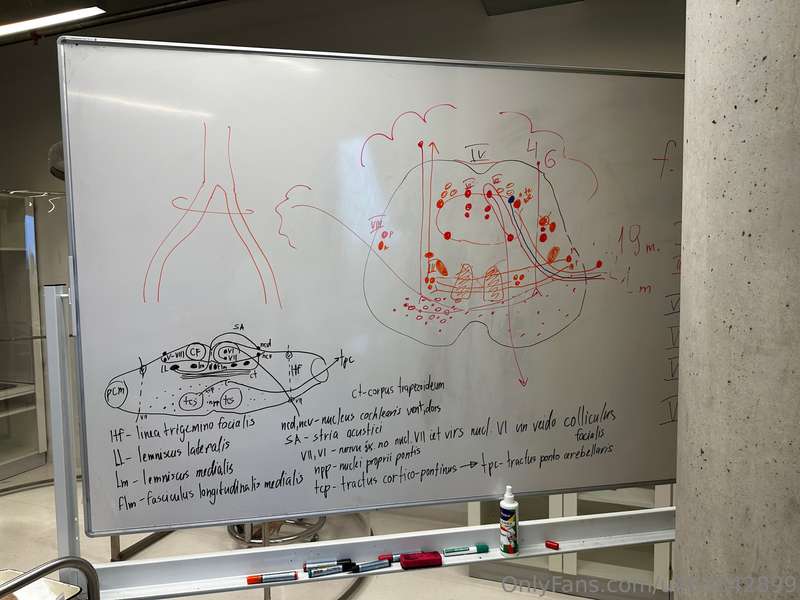 IV
46
f.
VIII
19 m.
1 m
SA
V-VIII
CF
VI
VII
ncd
ncv
LL
Lm
flm
ct
Htf
tpc
pcm
npp
tcs
tcs
VII
VII
ct-corpus trapezoideum
Htf- linea trigemino facialis
ncd, ncv - nucleus cochlearis vent, dors
LL - lemniscus lateralis
SA - stria acustici
VII, VI - nervu šķ. no nucl. VII iet virs nucl. VI un veido colliculus facialis
Lm - lemniscus medialis
npp - nuclei proprii pontis
flm - fasciculus longitudinalis medialis
tcp - tractus cortico-pontinus → tpc - tractus ponto cerebellaris